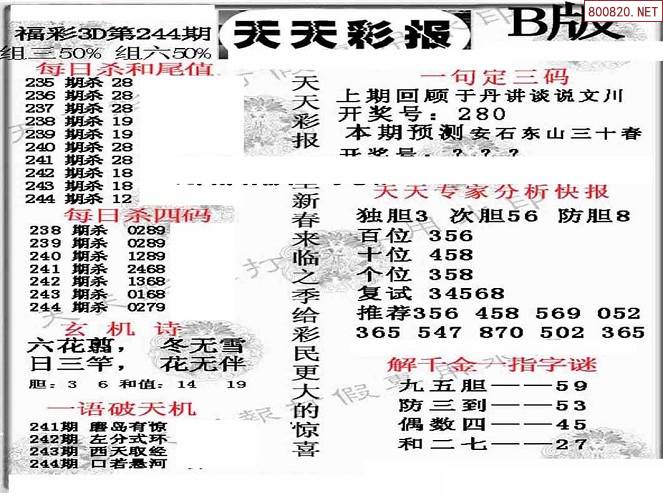 福彩3D第244期
组三50% 组六50%
天天彩报
B版
800820.NET
每日杀和尾值
235 期杀 28
236 期杀 28
237 期杀 28
238 期杀 19
239 期杀 19
240 期杀 28
241 期杀 28
242 期杀 18
243 期杀 18
244 期杀 12
每日杀四码
238 期杀 0289
239 期杀 0289
240 期杀 1289
241 期杀 2468
242 期杀 1368
243 期杀 0168
244 期杀 0279
玄机诗
六花翦， 冬无雪
日三竿， 花无伴
胆：3 6 和值：14 19
一语破天机
241期 磨岛有惊
242期 左分式环
243期 西天取经
244期 口若悬河
天天彩报
新春来临之季给彩民更大的惊喜
一句定三码
上期回顾于丹讲谈说文川
开奖号：280
本期预测安石东山三十春
开奖号：？？？
天天专家分析快报
独胆3 次胆56 防胆8
百位 356
十位 458
个位 358
复试 34568
推荐356 458 569 052
365 547 870 502 365
解千金一指字谜
九五胆——59
防三到——53
偶数四——45
和二七——27